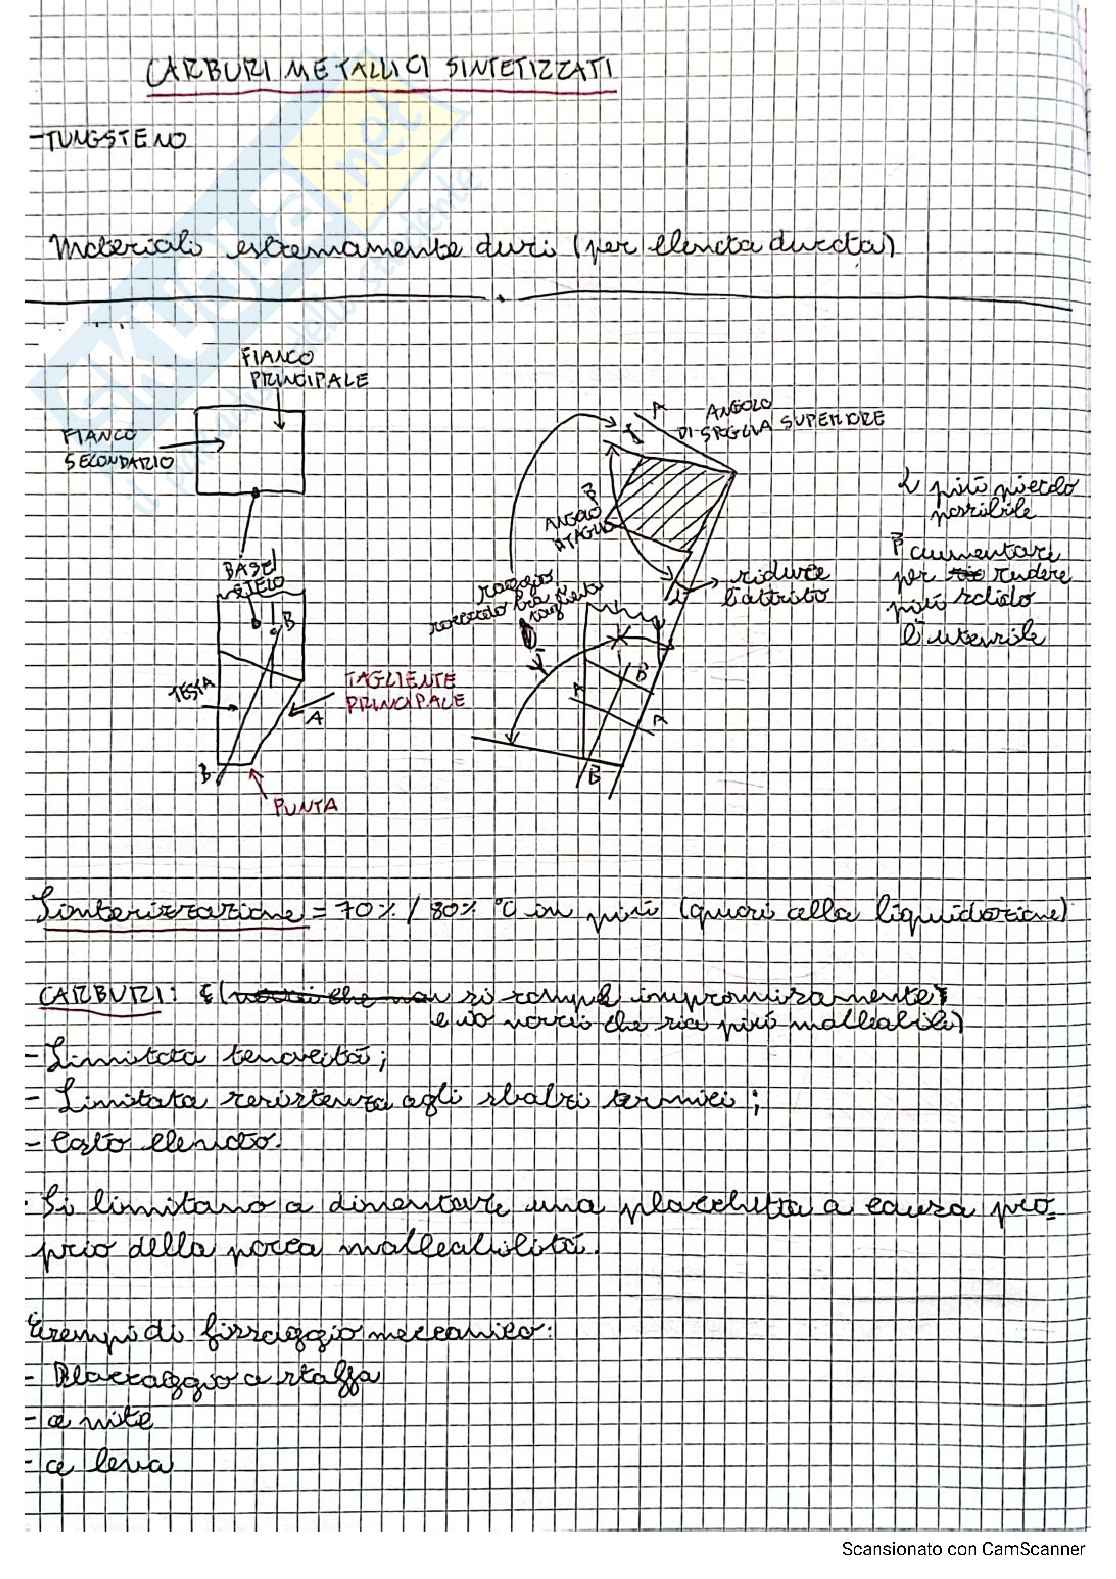 CARBURI METALLICI SINTETIZZATI
-TUNGSTENO
Materiali estremamente duri (per elencata durata)
FIANCO
PRINCIPALE
FIANCO
SECONDARIO
BASE/
STELO
B
TESTA
TAGLIENTE
PRINCIPALE
A
B
PUNTA
A
ANGOLO
DI SPOGLIA SUPERIORE
β
ANGOLO
DI TAGLIO
raggio
raccordo tra i
taglienti
ridurre
l'attrito
α più piccolo
possibile
β aumentare
per rendere
più solido
l'utensile
B
A
A
B
Sinterizzazione = 70% / 80% °C in più (quasi alla liquidazione)
CARBURI: si rompe improvvisamente
e io vorrei che sia più malleabile)
- Limitata tenacità;
- Limitata resistenza agli sbalzi termici;
- Costo elevato.
- Si limitano a diventare una placchetta a causa pro-
prio della poca malleabilità.
Esempi di fissaggio meccanico:
- Bloccaggio a staffa
- a vite
- a leva
Scansionato con CamScanner